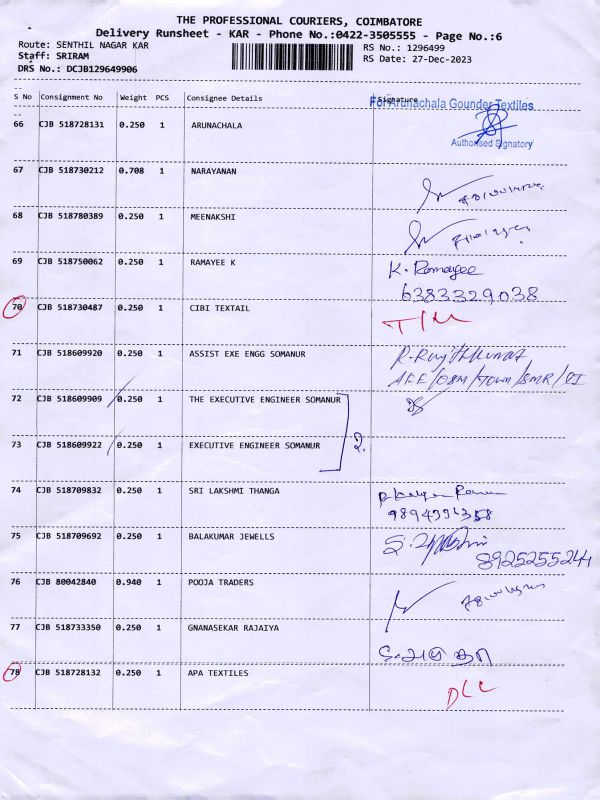 THE PROFESSIONAL COURIERS, COIMBATORE
Delivery Runsheet - KAR - Phone No.:0422-3505555 - Page No.:6
Route: SENTHIL NAGAR KAR
RS No.: 1296499
Staff: SRIRAM
RS Date: 27-Dec-2023
DRS No.: DCJB129649906
S No Consignment No Weight PCS Consignee Details Signature
For Arunachala Gounder Textiles
66 CJB 518728131 0.250 1 ARUNACHALA
Authorised Signatory
67 CJB 518730212 0.708 1 NARAYANAN
68 CJB 518780389 0.250 1 MEENAKSHI
69 CJB 518750062 0.250 1 RAMAYEE K K. Ramayee
6383329038
70 CJB 518730487 0.250 1 CIBI TEXTAIL
71 CJB 518609920 0.250 1 ASSIST EXE ENGG SOMANUR
72 CJB 518609909 0.250 1 THE EXECUTIVE ENGINEER SOMANUR
2.
73 CJB 518609922 0.250 1 EXECUTIVE ENGINEER SOMANUR
74 CJB 518709832 0.250 1 SRI LAKSHMI THANGA
75 CJB 518709692 0.250 1 BALAKUMAR JEWELLS
8925255241
76 CJB 80042840 0.940 1 POOJA TRADERS
77 CJB 518733350 0.250 1 GNANASEKAR RAJAIYA
78 CJB 518728132 0.250 1 APA TEXTILES DLC